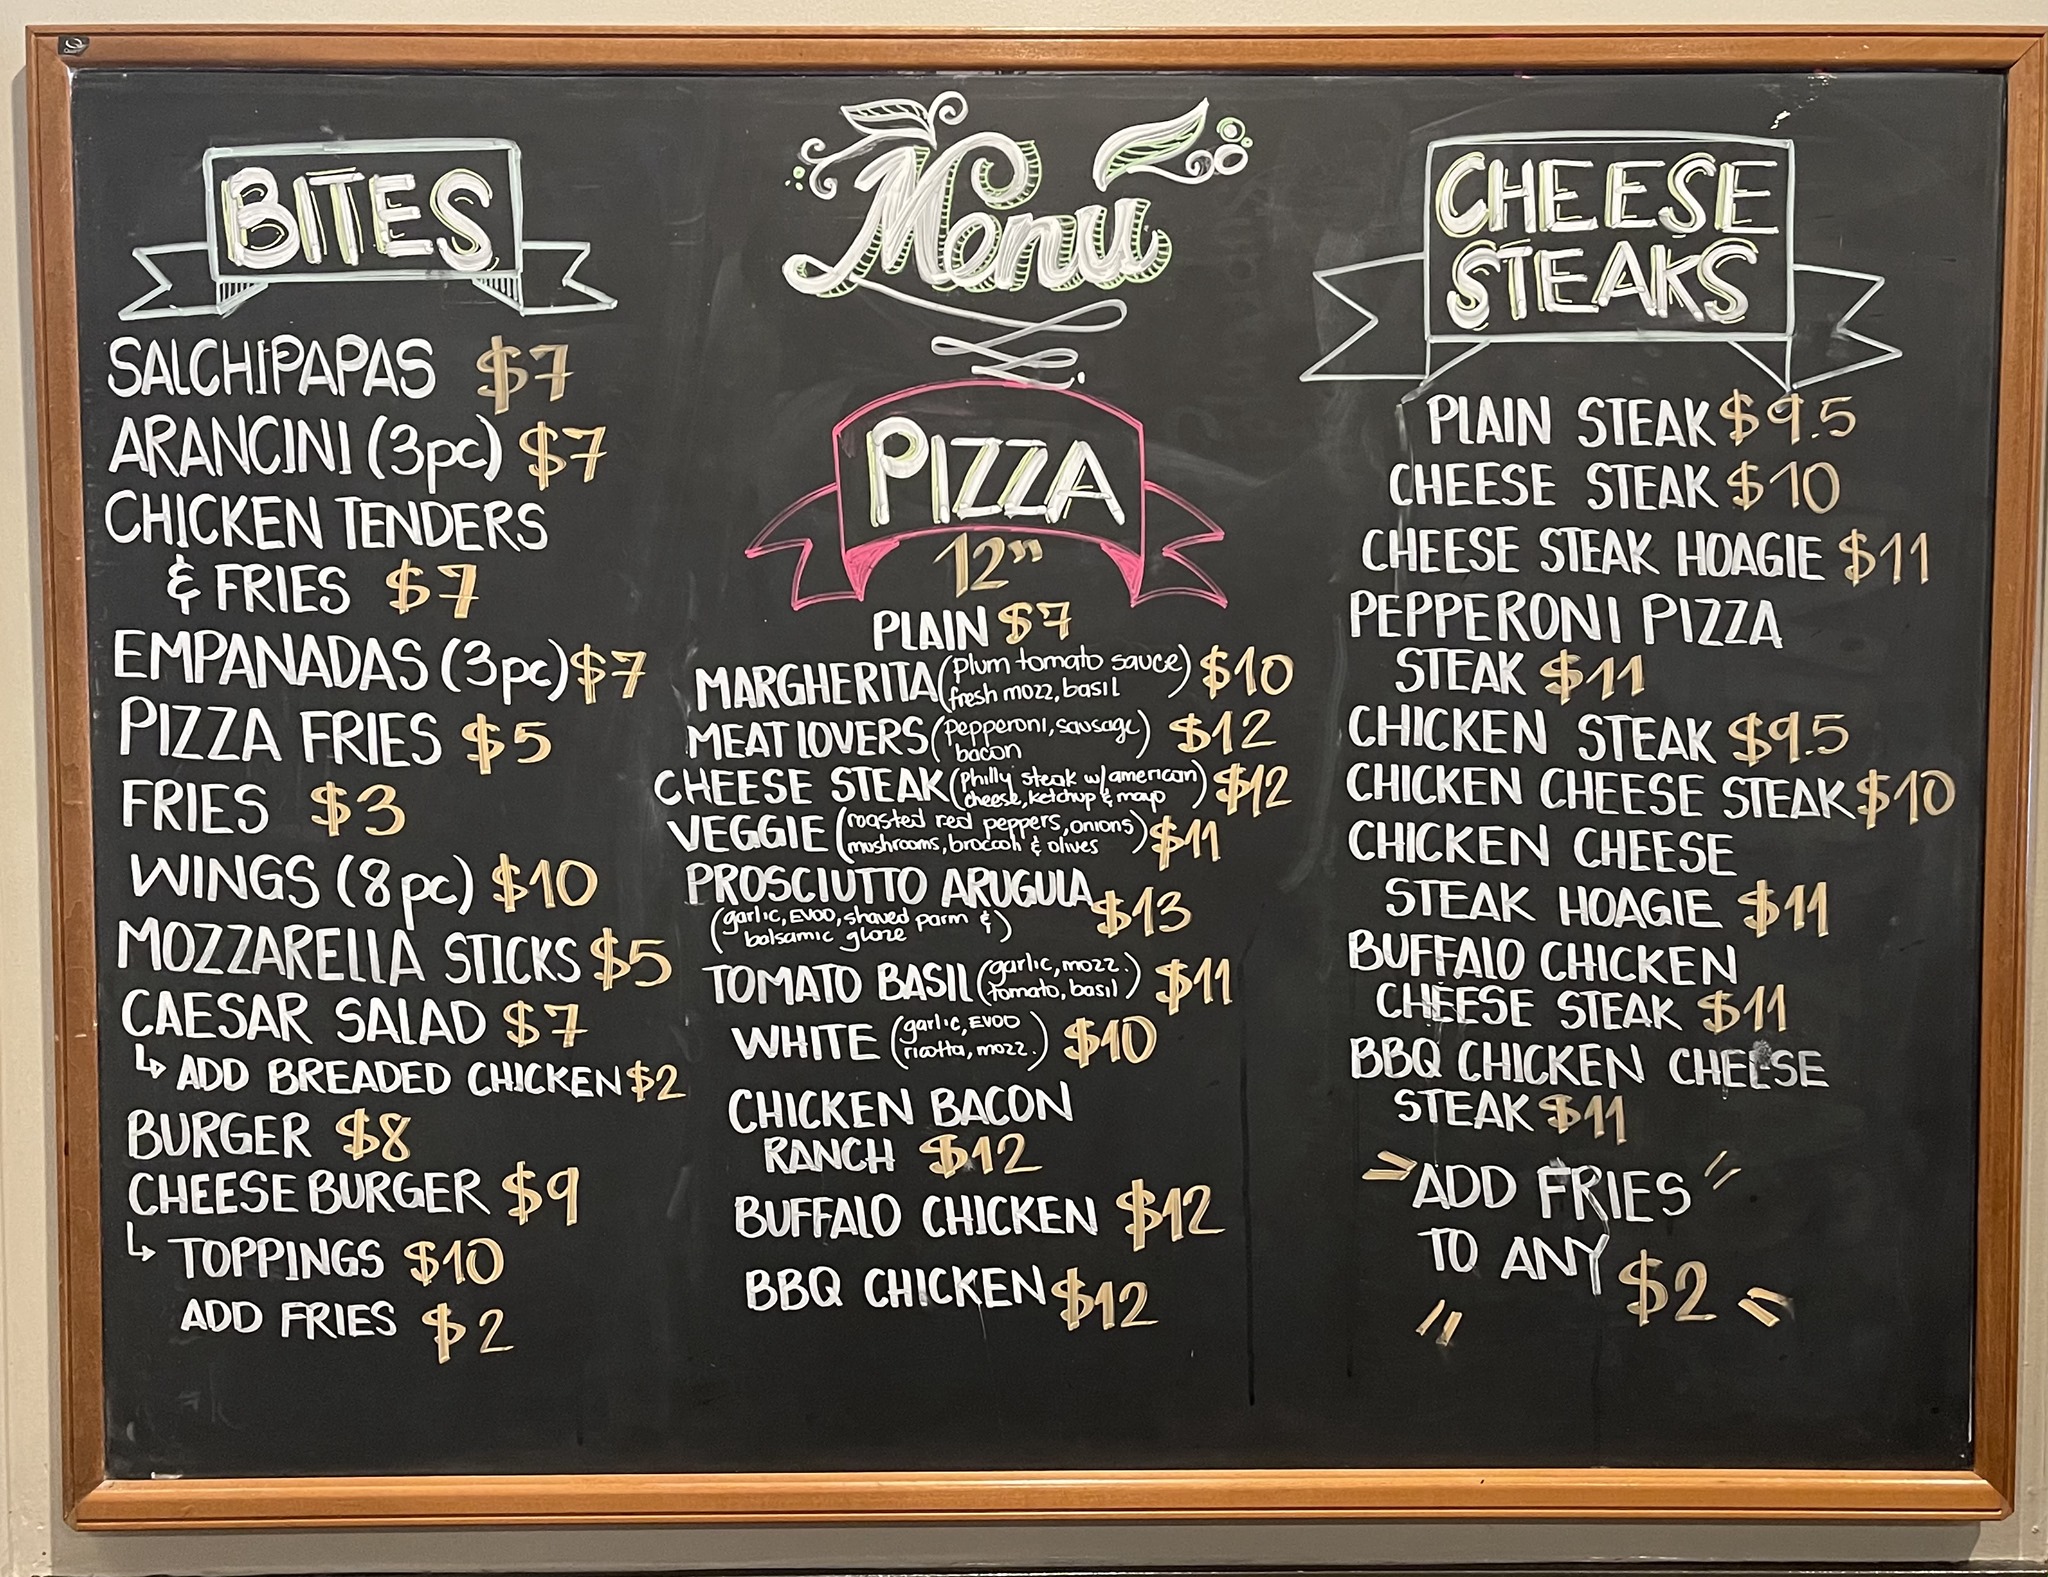 Menu
BITES
SALCHIPAPAS $7
ARANCINI (3pc) $7
CHICKEN TENDERS
& FRIES $7
EMPANADAS (3pc) $7
PIZZA FRIES $5
FRIES $3
WINGS (8pc) $10
MOZZARELLA STICKS $5
CAESAR SALAD $7
↳ ADD BREADED CHICKEN $2
BURGER $8
CHEESE BURGER $9
↳ TOPPINGS $10
ADD FRIES $2
PIZZA
12"
PLAIN $7
MARGHERITA (plum tomato sauce
fresh mozz, basil) $10
MEAT LOVERS (pepperoni, sausage
bacon) $12
CHEESE STEAK (Philly steak w/ american
cheese, ketchup & mayo) $12
VEGGIE (roasted red peppers, onions
mushrooms, broccoli & olives) $11
PROSCIUTTO ARUGULA $13
(garlic, EVOO, shaved parm &
balsamic glaze)
TOMATO BASIL (garlic, mozz.
tomato, basil) $11
WHITE (garlic, EVOO
ricotta, mozz.) $10
CHICKEN BACON
RANCH $12
BUFFALO CHICKEN $12
BBQ CHICKEN $12
CHEESE
STEAKS
PLAIN STEAK $9.5
CHEESE STEAK $10
CHEESE STEAK HOAGIE $11
PEPPERONI PIZZA
STEAK $11
CHICKEN STEAK $9.5
CHICKEN CHEESE STEAK $10
CHICKEN CHEESE
STEAK HOAGIE $11
BUFFALO CHICKEN
CHEESE STEAK $11
BBQ CHICKEN CHEESE
STEAK $11
ADD FRIES
TO ANY $2